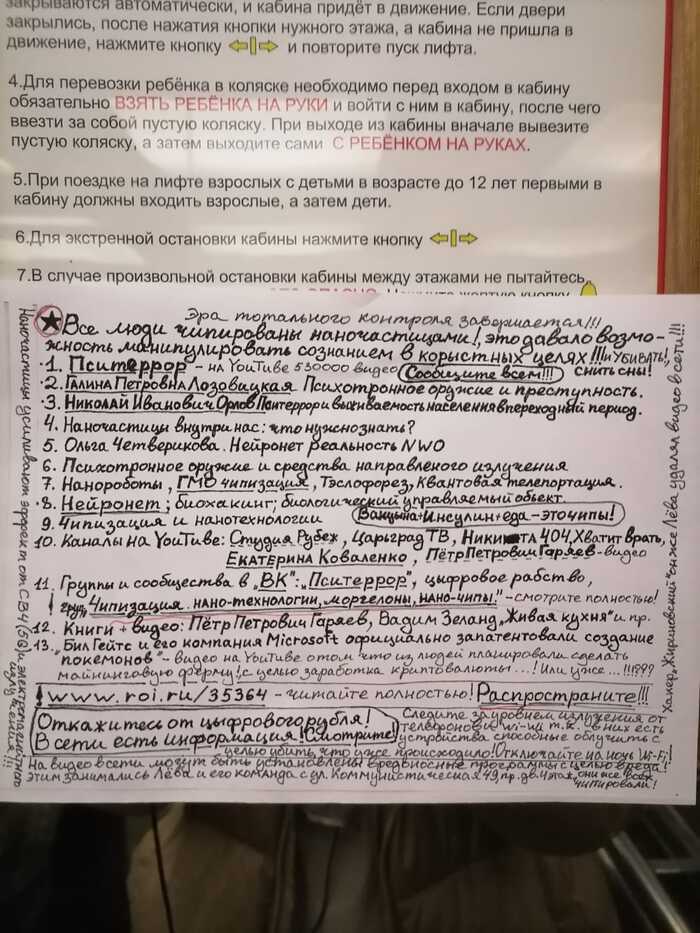 закрываются автоматически, и кабина придёт в движение. Если двери
закрылись, после нажатия кнопки нужного этажа, а кабина не пришла в
движение, нажмите кнопку и повторите пуск лифта.
4.Для перевозки ребёнка в коляске необходимо перед входом в кабину
обязательно ВЗЯТЬ РЕБЁНКА НА РУКИ и войти с ним в кабину, после чего
ввезти за собой пустую коляску. При выходе из кабины вначале вывезите
пустую коляску, а затем выходите сами С РЕБЁНКОМ НА РУКАХ.
5.При поездке на лифте взрослых с детьми в возрасте до 12 лет первыми в
кабину должны входить взрослые, а затем дети.
6.Для экстренной остановки кабины нажмите кнопку
7.В случае произвольной остановки кабины между этажами не пытайтесь
Эра тотального контроля завершается!!!
Все люди чипированы наночастицами!, это давало возмо-
жность манипулировать сознанием в корыстных целях!!! и УБИВАТЬ!,
снить сны!
·1. Пситеррор - на YouTube 530000 видео Сообщите всем!!!
·2. ГАЛИНА ПЕТРОВНА Лозовицкая. Психотронное оружие и преступность.
·3. Николай Иванович Орлов Пситеррор и выживаемость населения в переходный период.
4. Наночастицы внутри нас: что нужно знать?
5. Ольга Четверикова. Нейронет Реальность NWO
6. Психотронное оружие и средства направленого излучения
7. Нанороботы, ГМО чипизация, Тэслофорез, Квантовая телепортация.
·8. Нейронет; биохакинг; биологический управляемый объект.
9. Чипизация и нанотехнологии Вакцына+Инсулин+еда-это чипы!
10. Каналы на YouTube: Студия Рубеж, Царьград ТВ, 404, Хватит врать,
Екатерина Коваленко, Пётр Петрович Гаряев-видео
11. Группы и сообщества в „ВК": „Пситеррор", цыфровое рабство,
груп. Чипизация. нано-технологии, моргелоны, нано-чипы." - смотрите полностью!
12. Книги + видео: Пётр Петрович Гаряев, Вадим Зеланд, „Живая кухня" и пр.
13. Бил Гейтс и его компания Microsoft официально запатентовали создание
покемонов" - видео на YouTube о том что из людей планировали сделать
майнинговую ферму! с целью заработка криптовалюты...! Или уже...!!!???
! www.roi.ru/35364 - читайте полностью! Распространите!!!
Откажитесь от цыфрового рубля!
В сети есть информация! Смотрите
Следите за уровнем излучения от
телефонов и wi-wi т.к. в них есть
устройства способные облучить с
целью убить, что уже происходило! Отключайте на ночь Wi-Fi!
На видео в сети могут быть установлены вредоносные программы с целью вреда!
Этим занимались Лёва и его команда с ул. Коммунистическая 49, пр.-дв 4 этаж, они же всех
чипировали!
Наночастицы усиливают эффект от СВЧ (5G) и электромагнитного
излучения!!!
Хакер, Жириновский" он же Лёва удалял видео в сети!!!